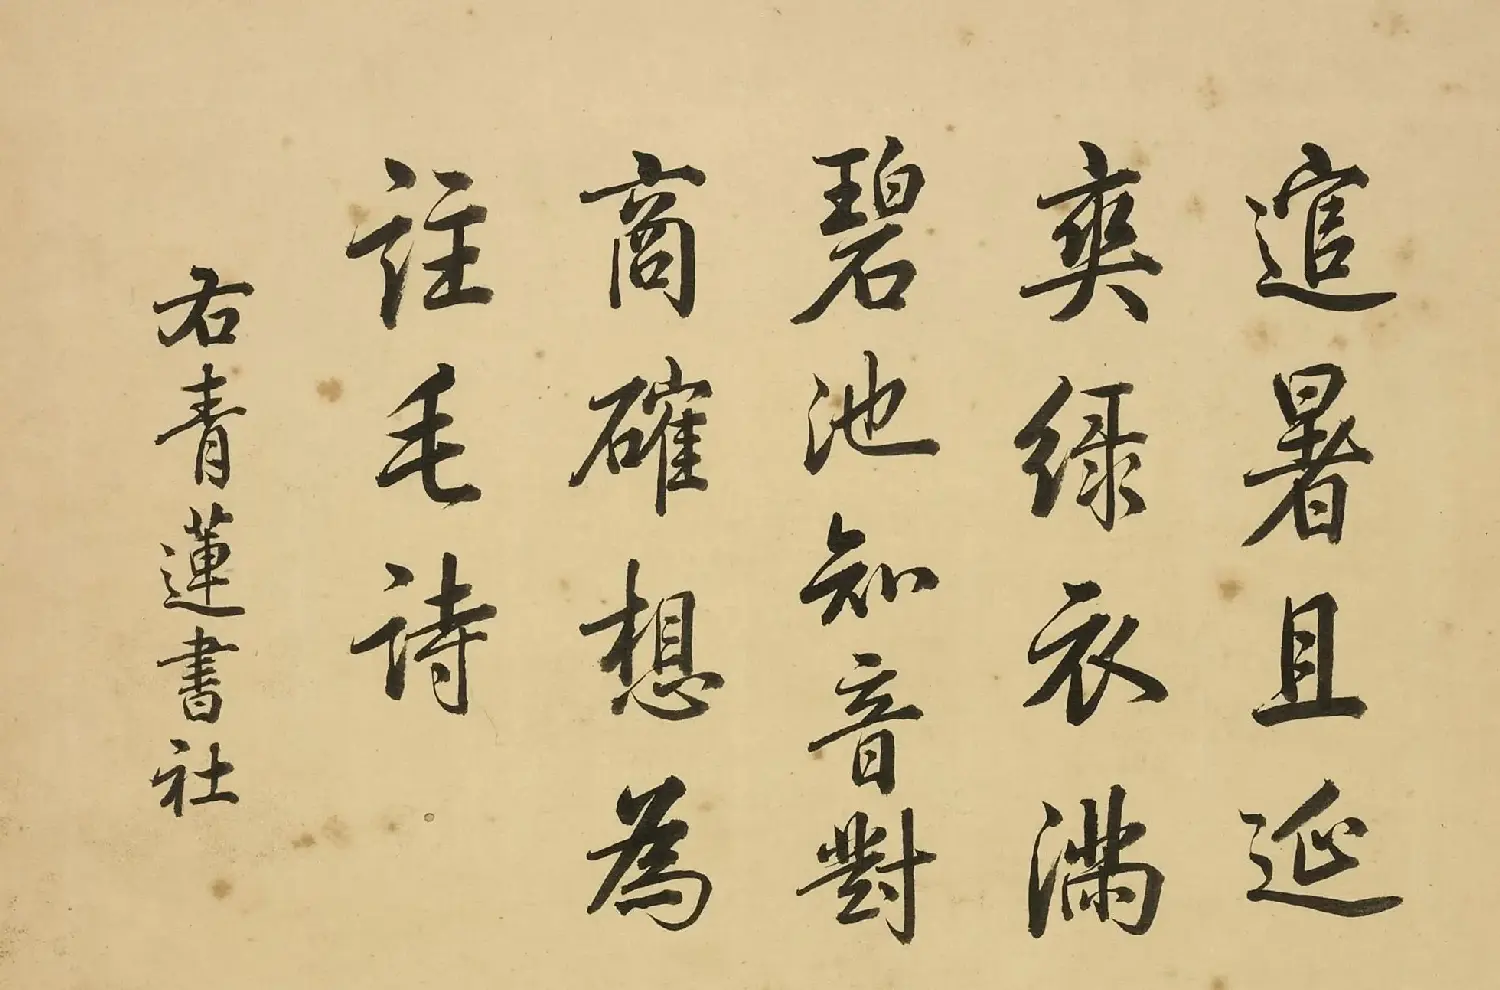 逭暑且延
爽綠衣滿
碧池知音對
商確想為
註毛詩
右青蓮書社